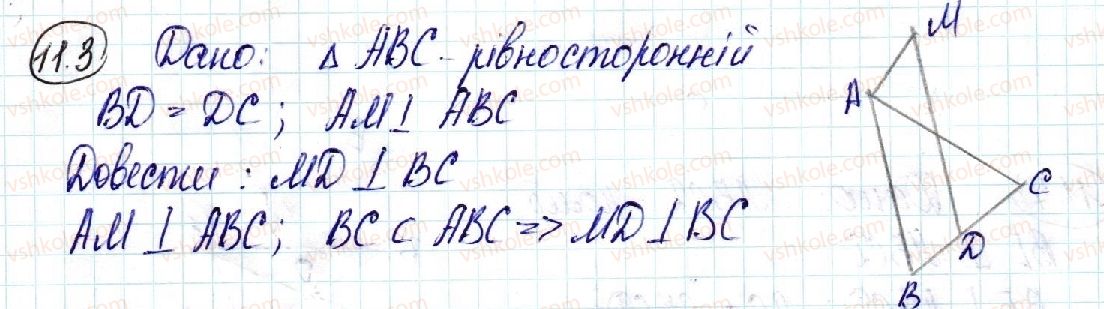 11.3 Дано: Δ ABC - рівносторонній
BD = DC; AM ⊥ ABC
Довести: MD ⊥ BC
AM ⊥ ABC; BC ⊂ ABC => MD ⊥ BC
M
A
C
D
B